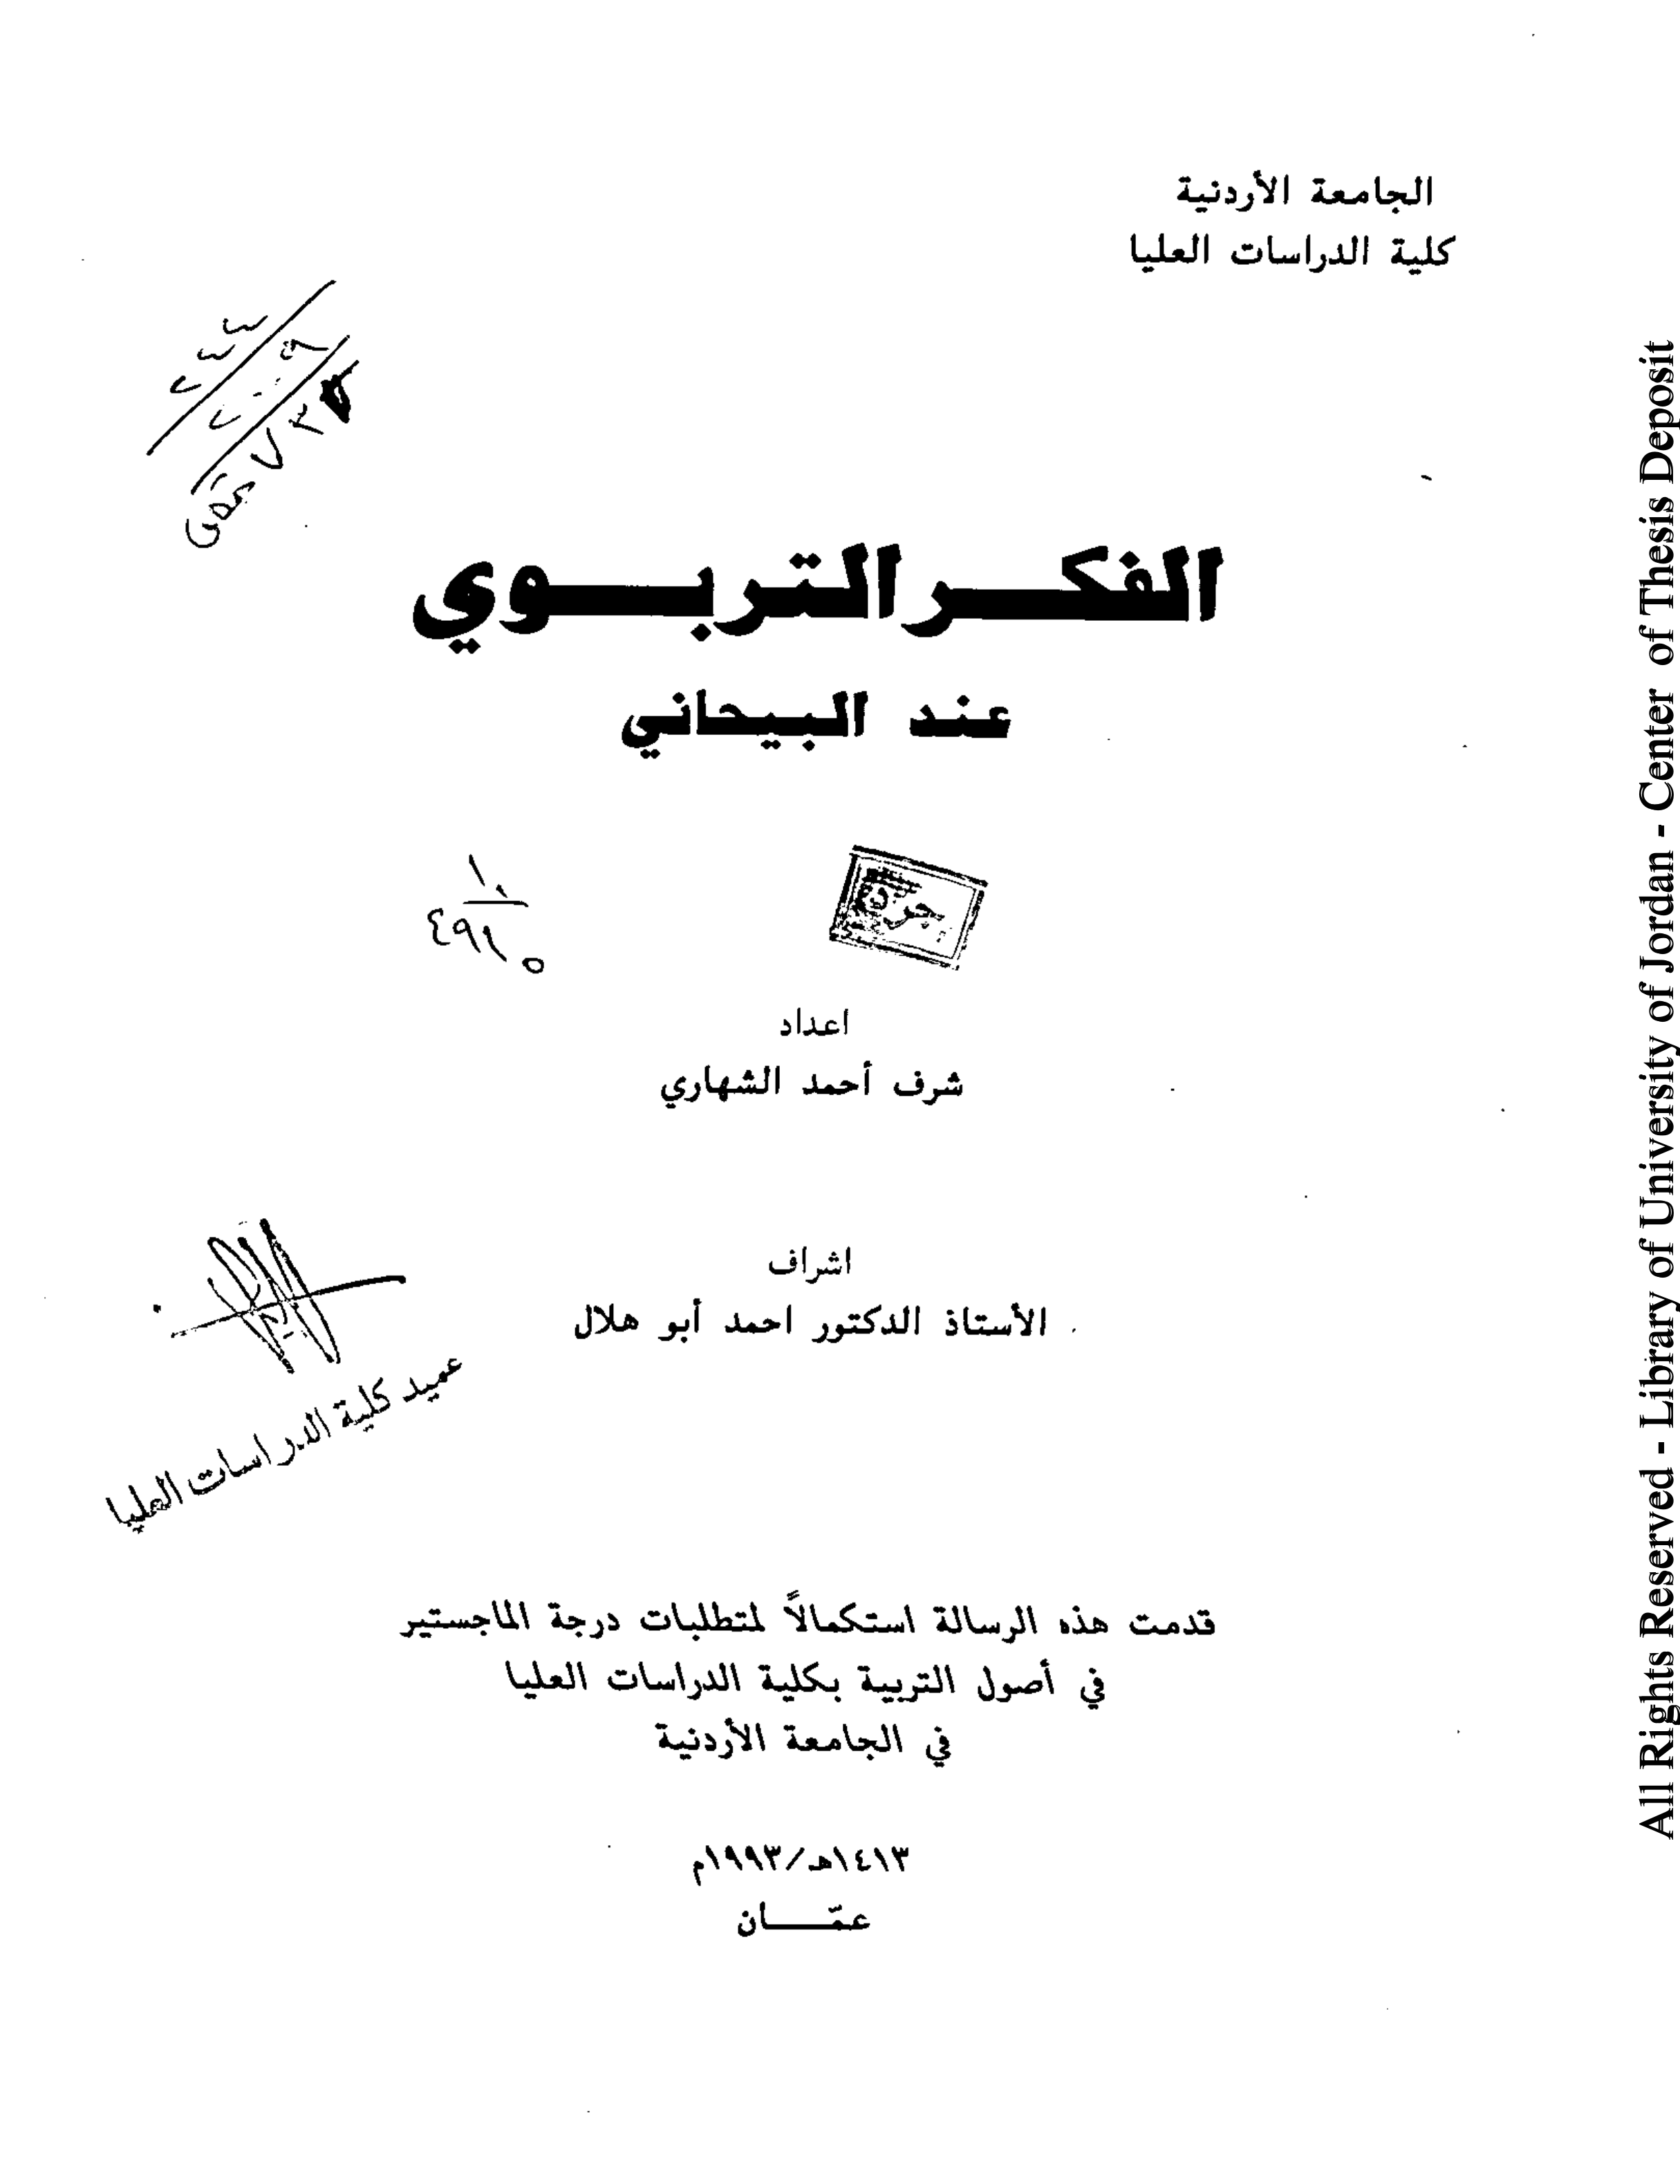 الجامعة الأردنية
كلية الدراسات العليا
الفكر التربوي
عند البيحاني
اعداد
شرف أحمد الشهاري
اشراف
الأستاذ الدكتور احمد أبو هلال
عميد كلية الدراسات العليا
قدمت هذه الرسالة استكمالاً لمتطلبات درجة الماجستير
في أصول التربية بكلية الدراسات العليا
في الجامعة الأردنية
١٤١٣هـ/١٩٩٣م
عمّــــان
All Rights Reserved - Library of University of Jordan - Center of Thesis Deposit